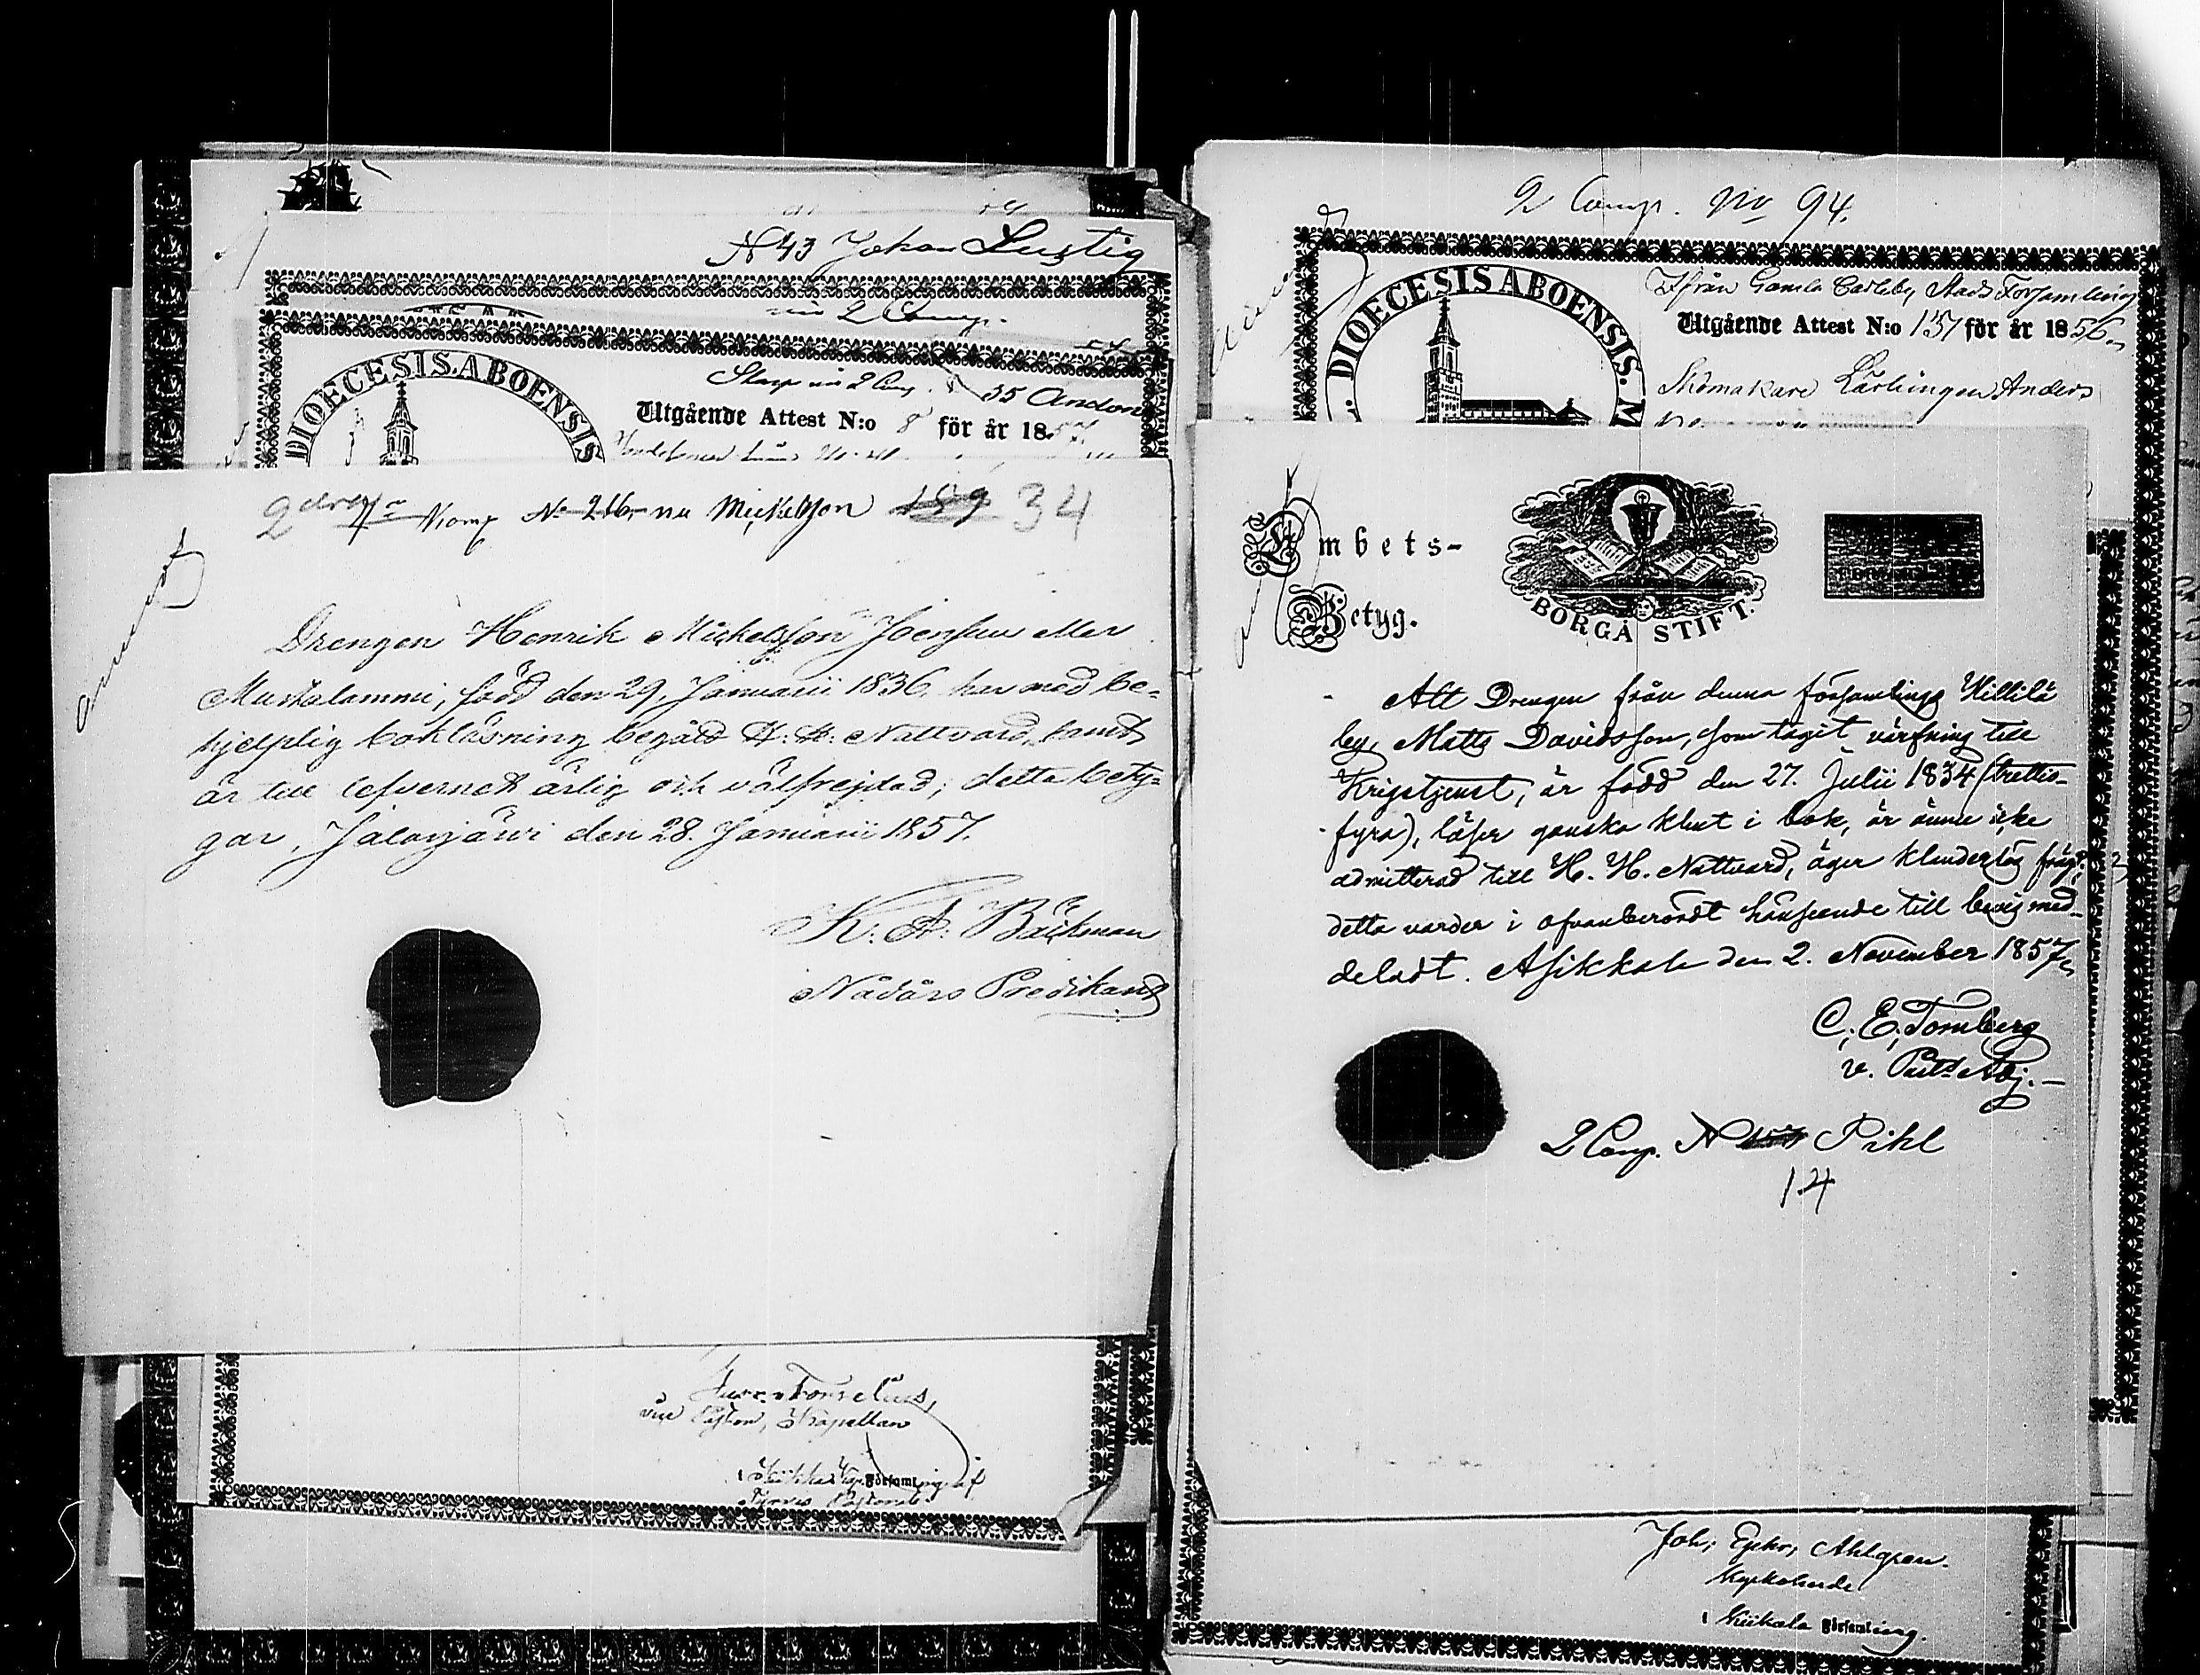 N 43 Johan Lustig
2 Comp.
DIOECESIS ABOENSIS
35 Andon
Utgående Attest N:o 8 för år 1857.
2 Komp N 216 nu Mickelsson 34
Drengen Henrik Mickelsson Joensuu eller
Mustalammi, född den 29. Januarii 1836. har med be-
hjelplig bokläsning begått H. H. Nattvard, samt
är till lefvernet ärlig och välfrejdad; detta bety-
gar, Jalasjärvi den 28. Januarii 1857.
K. A. Bäckman
Nådårs Predikant
vice Pastor, Kapellan
i Församling af
2 Comp. No 94.
DIOECESIS ABOENSIS. M
Ifrån Gamla Carleby Stads Församling
Utgående Attest N:o 151 för år 1856.
Skomakare Lärlingen Anders
Embets-
Betyg.
BORGÅ STIFT.
Att Drengen från denna församlings Hillilä
by, Matts Davidsson, som tagit värfning till
Krigstjenst, är född den 27. Julii 1834 (trettio-
fyra), läser ganska klent i bok, är ännu icke
admitterad till H. H. Nattvard, äger klanderlös frägd;
detta varder i ofvanberördt hänseende till bevis med-
deladt. Asikkala den 2. November 1857.
C. E. Tornberg
v. Past. Adj.
2 Comp. N Pihl
14
Joh. Ephr. Ahlgren.
Kyrkoherde
i Kiikala Församling.